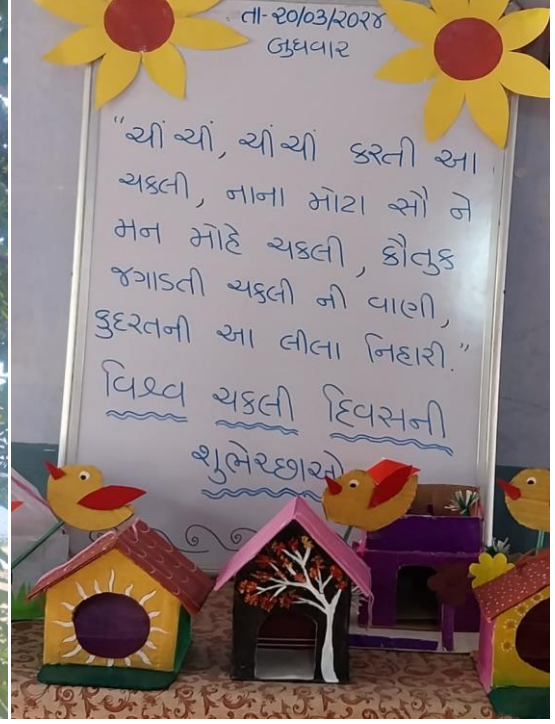 તા-૨૦/૦૩/૨૦૨૪
બુધવાર
"ચીં ચીં, ચીં ચીં કરતી આ
ચકલી, નાના મોટા સૌ ને
મન મોહે ચકલી, કૌતુક
જગાડતી ચકલી ની વાણી,
કુદરતની આ લીલા નિહારી."
વિશ્વ ચકલી દિવસની
શુભેચ્છાઓ